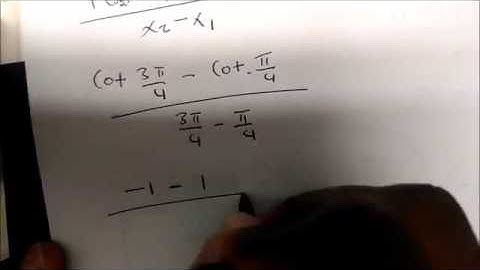 x₂ - x₁
Cot 3π/4 - Cot. π/4
3π/4 - π/4
-1 - 1